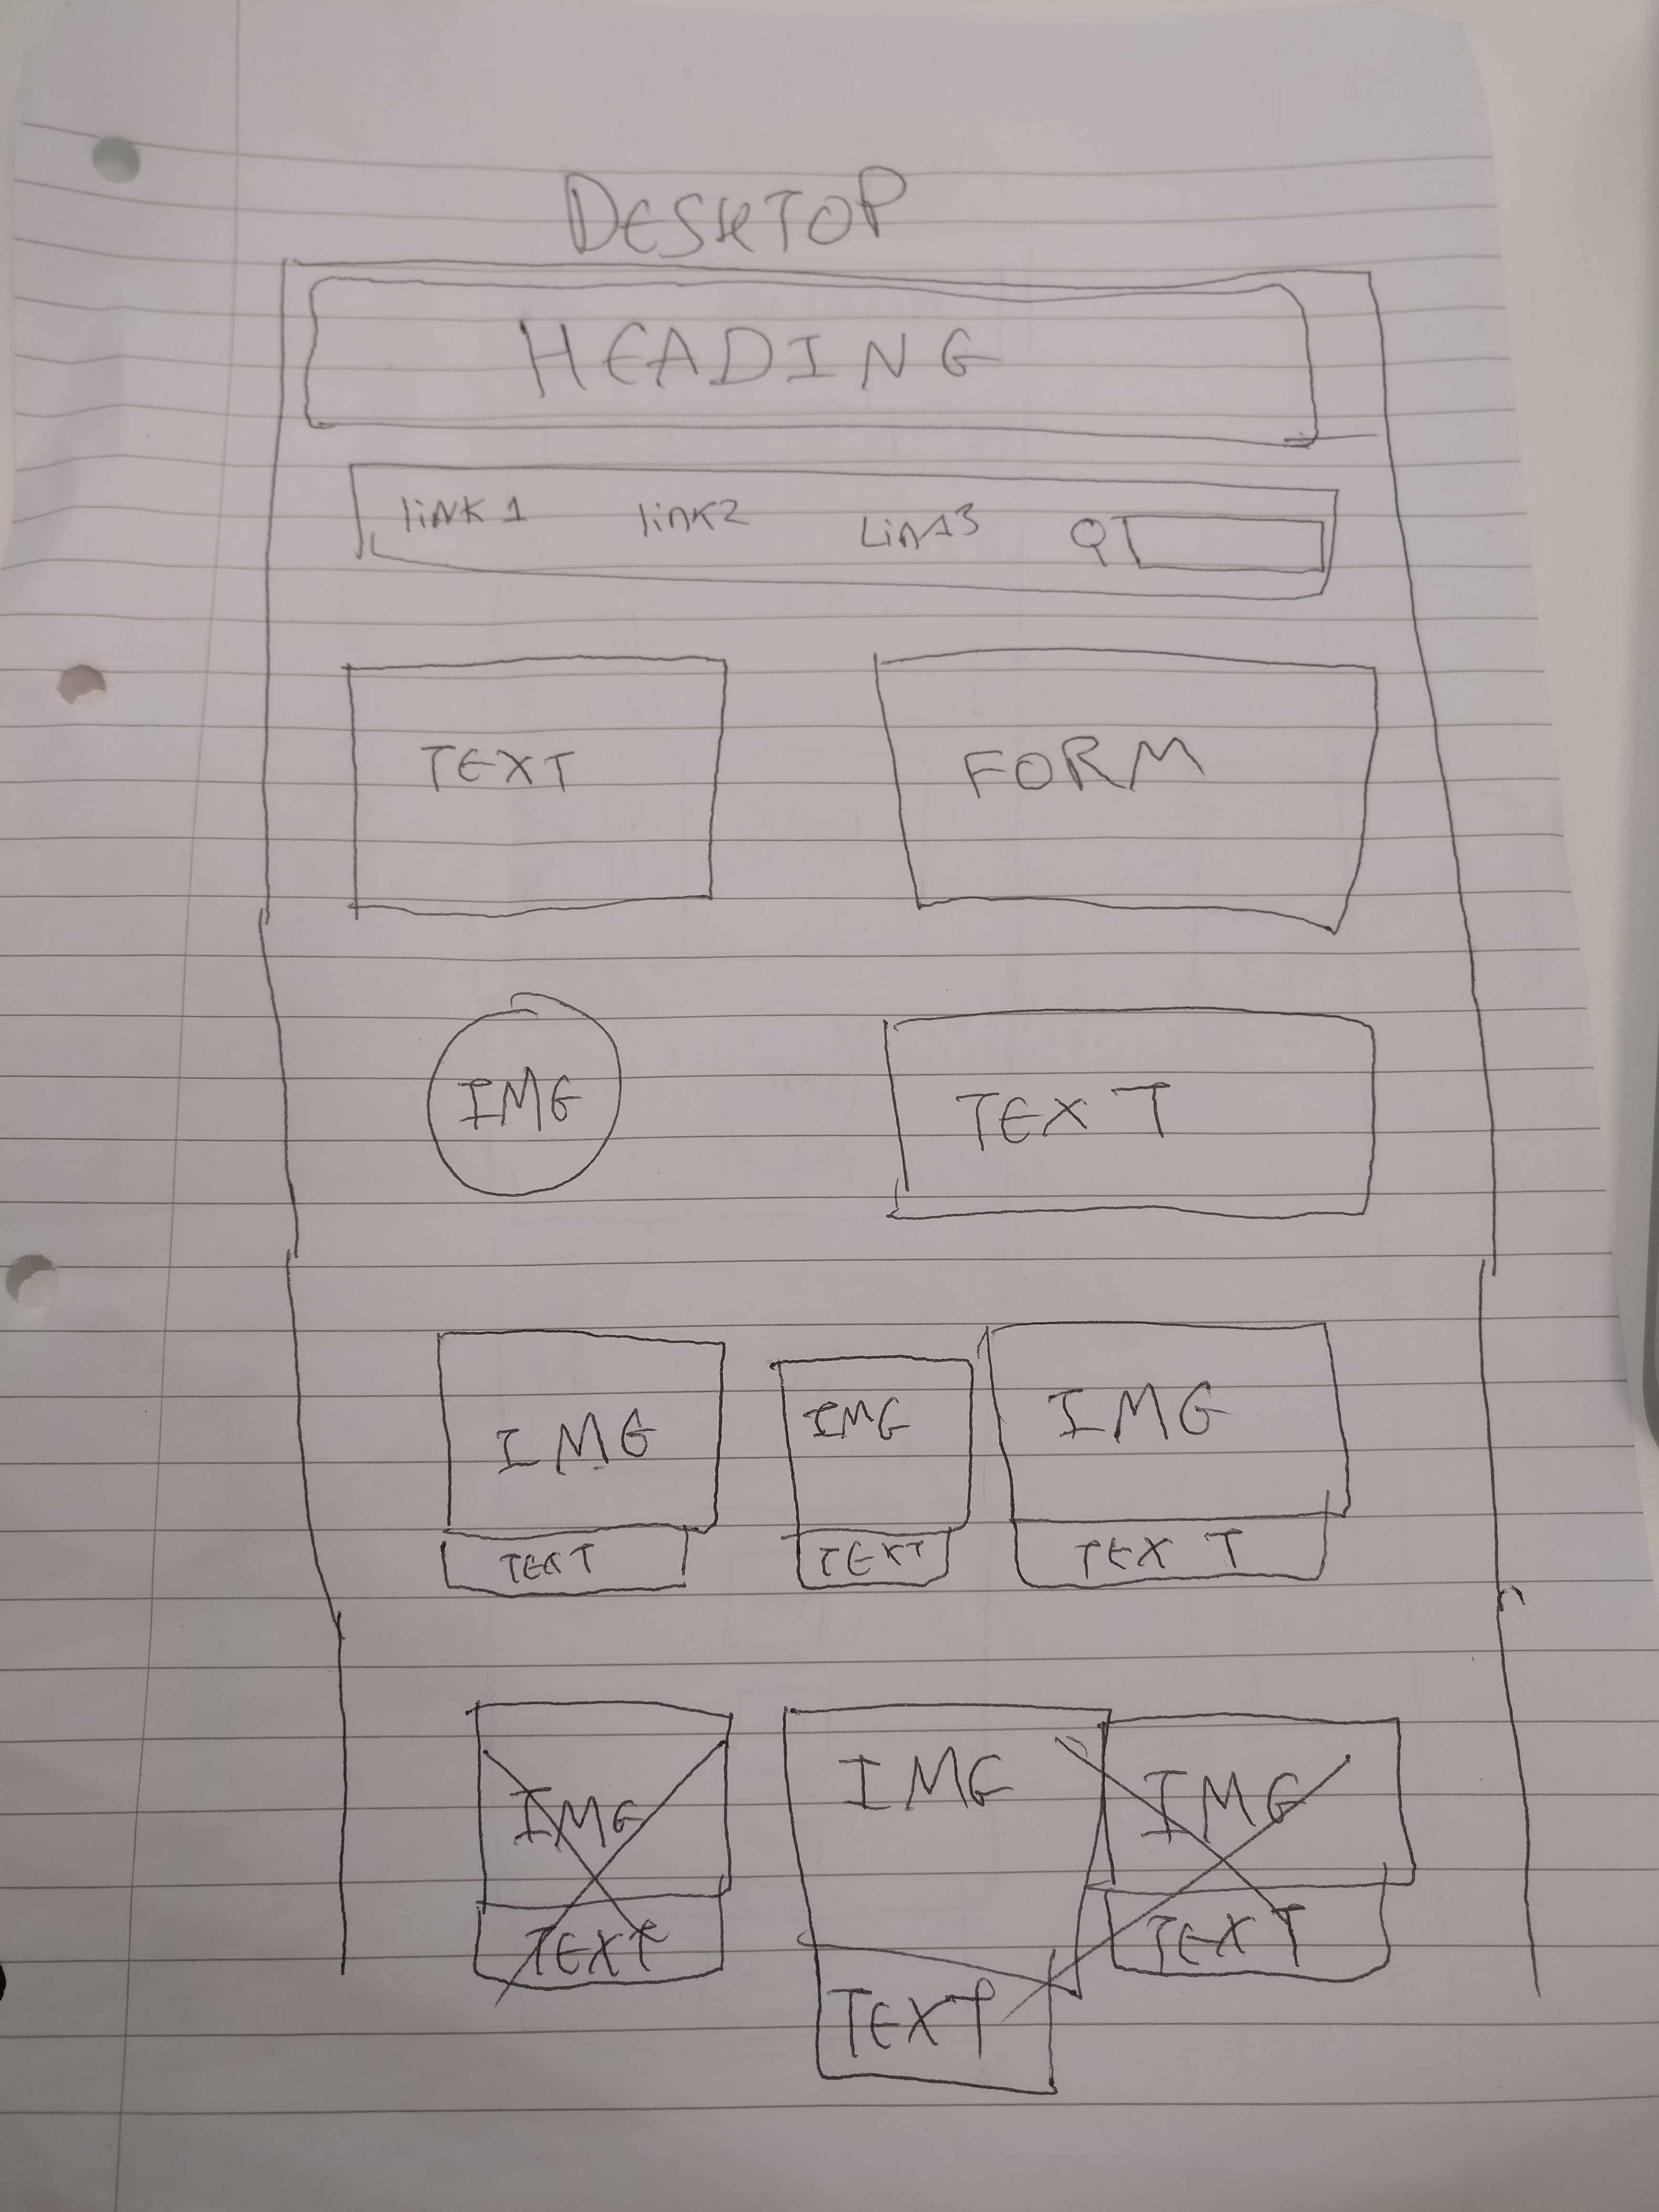 DESKTOP
HEADING
link 1 link2 Link3
TEXT FORM
IMG TEXT
IMG IMG IMG
TEXT TEXT TEXT
IMG IMG IMG
TEXT TEXT TEXT